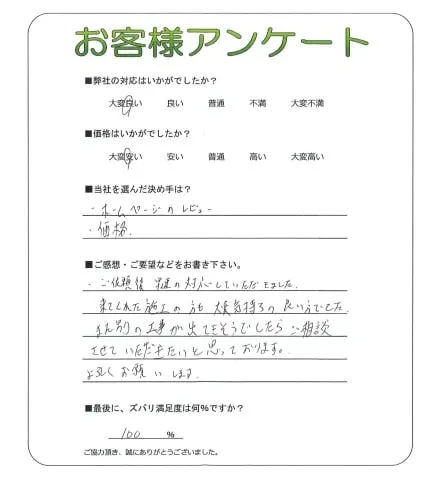 お客様アンケート
■弊社の対応はいかがでしたか？
大変良い 良い 普通 不満 大変不満
■価格はいかがでしたか？
大変安い 安い 普通 高い 大変高い
■当社を選んだ決め手は？
・ホームページのレビュー
・価格.
■ご感想・ご要望などをお書き下さい。
・ご依頼後 早速の対応していただきました.
来てくれた施工の方も 大変気持ちの良い方でした.
また別の工事が出てきそうでしたらご相談
させていただきたいと思っております.
よろしくお願いします.
■最後に、ズバリ満足度は何%ですか？
100 %
ご協力頂き、誠にありがとうございました。